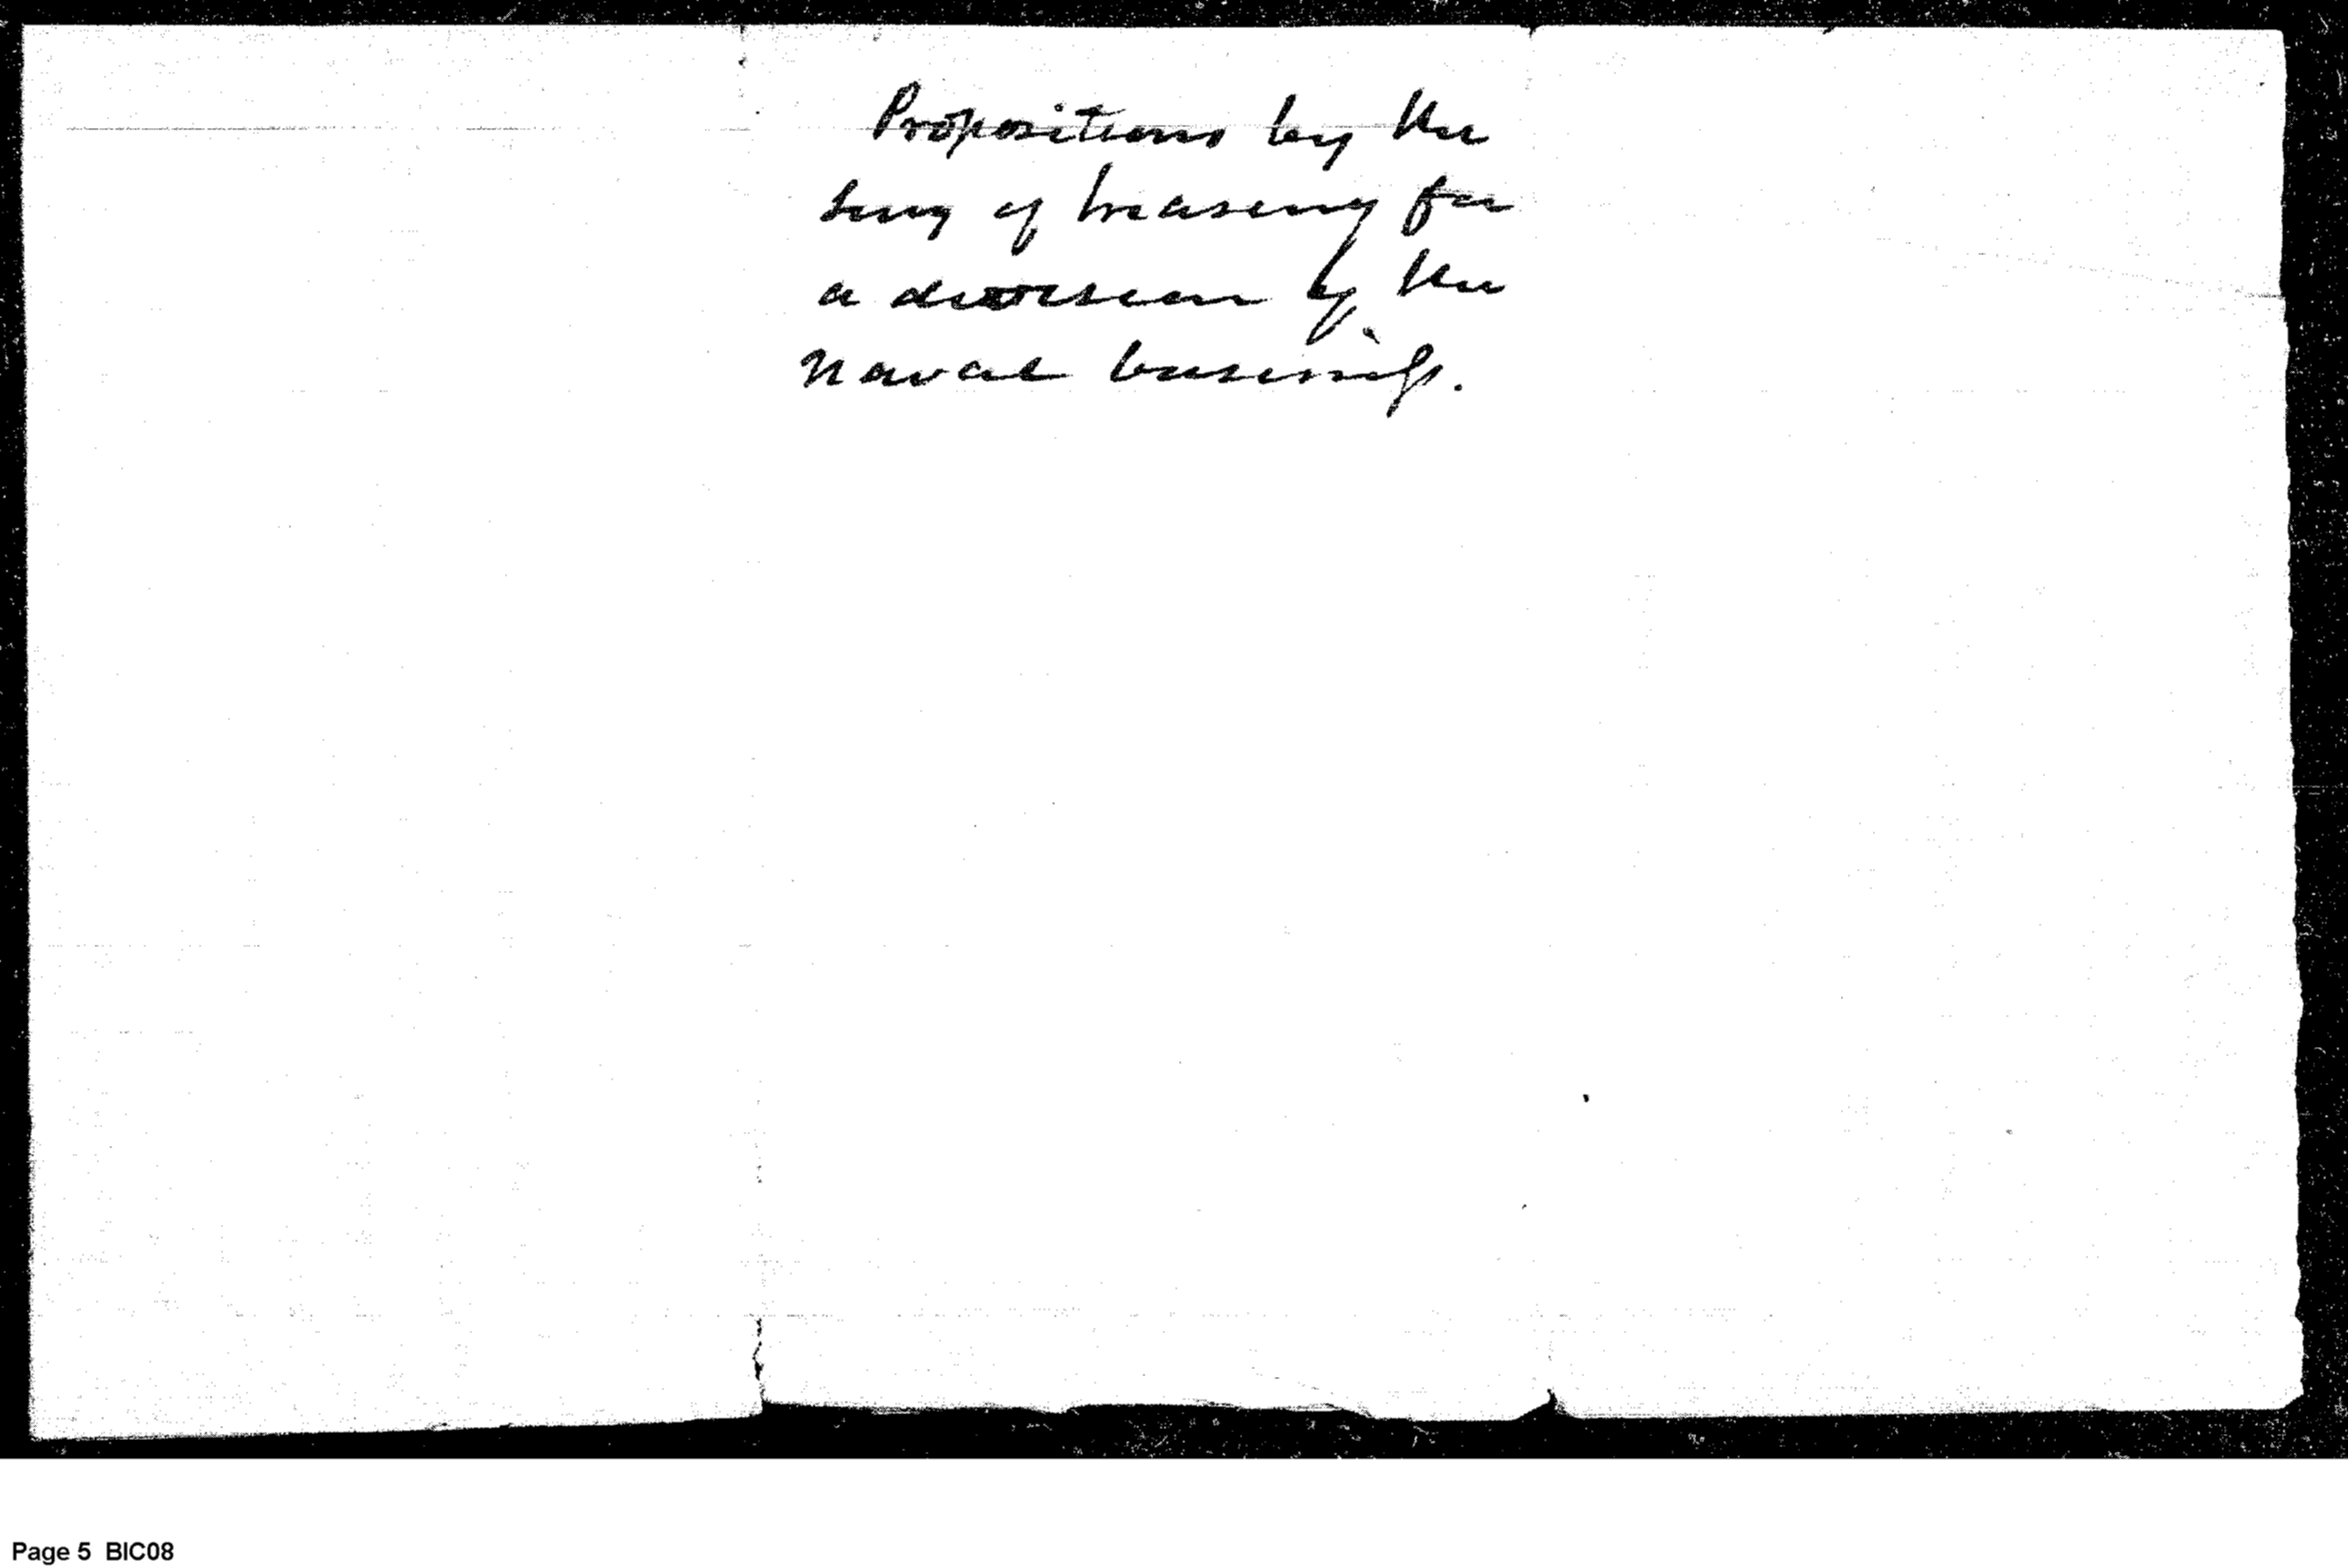 Propositions by the
Secy of Treasury for
a division of the
Naval business.
Page 5 BIC08